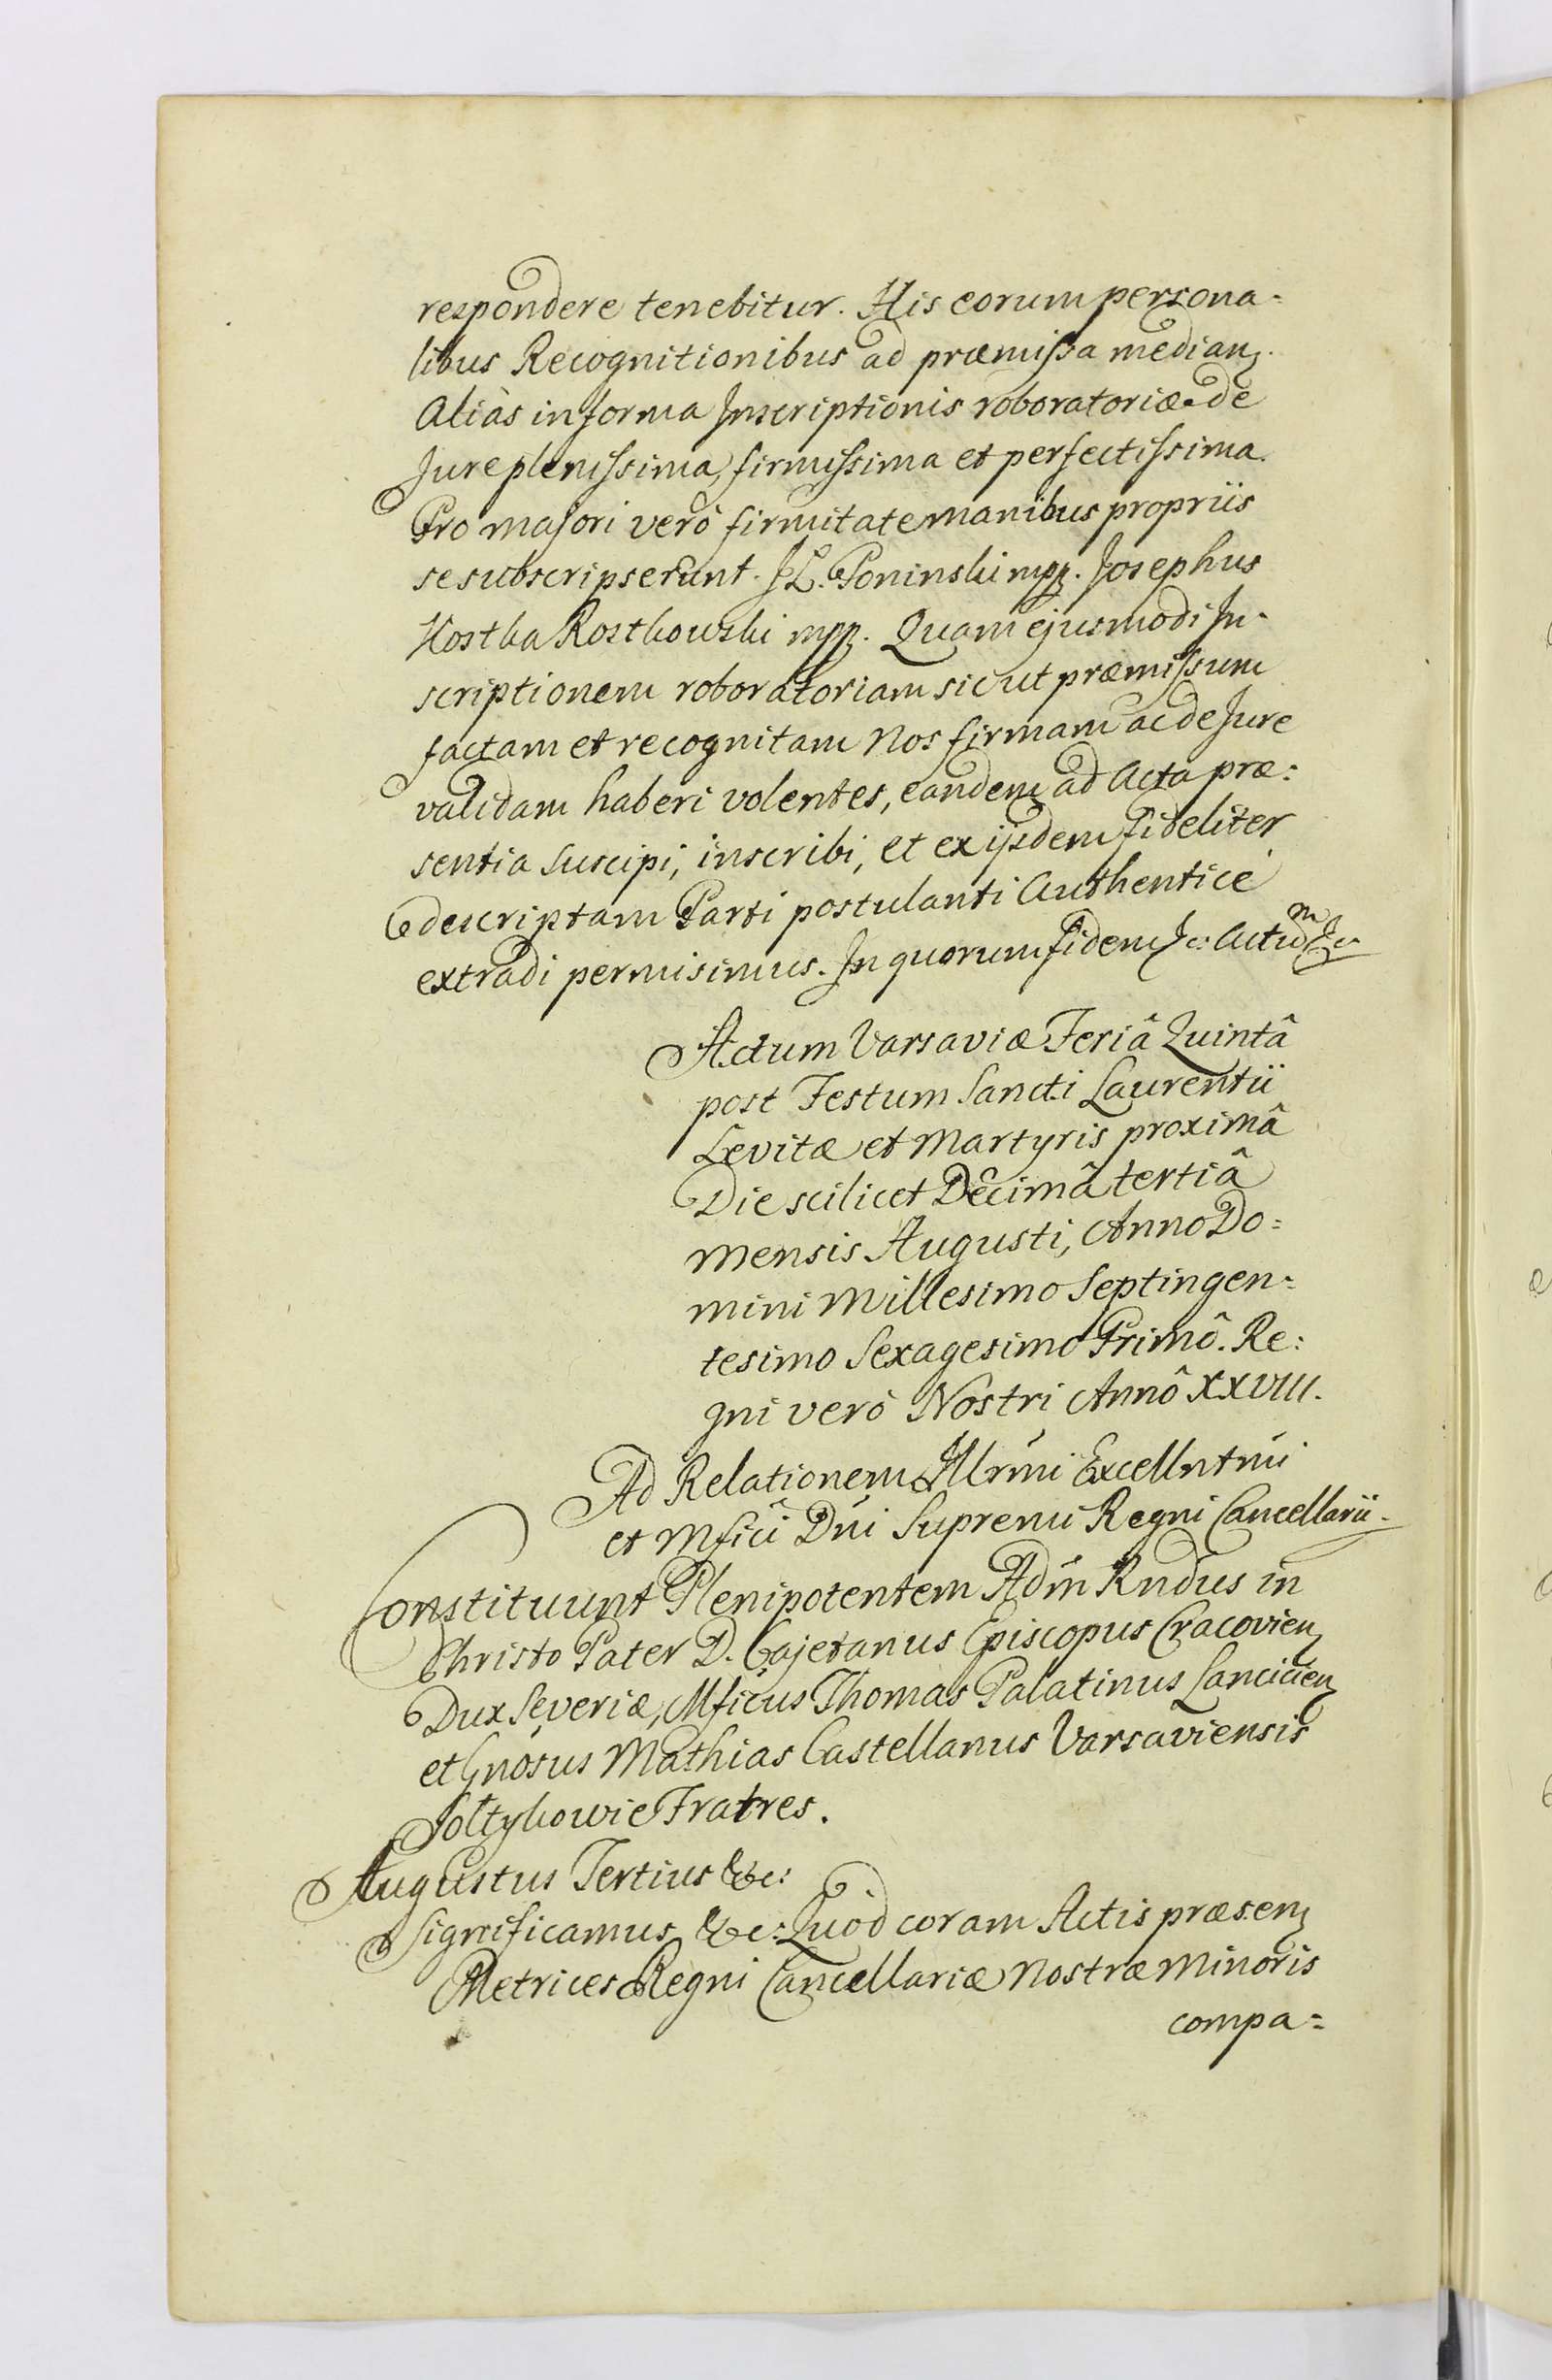 respondere tenebitur. His eorum persona=
libus Recognitionibus ad præmissa median.
Aliàs in forma Inscriptionis roboratoriæ de
Jure plenissima, firmissima et perfectissima.
Pro majori verò firmitate manibus propriis
se subscripserunt. J L. Poninski mpp. Josephus
Kostka Rostkowski mpp. Quam ejusmodi In=
scriptionem roboratoriam sicut præmissum
factam et recognitam Nos firmam ac de Jure
validam haberi volentes, eandem ad Acta præ=
sentia suscipi, inscribi, et ex ijsdem fideliter
descriptam Parti postulanti Authenticè
extradi permisimus. In quorum fidem &c: Actũ &c.
Actum Varsaviæ Feriâ Quintâ
post Festum Sancti Laurentii
Levitæ et Martyris proximâ
Die scilicet Decimâ tertiâ
Mensis Augusti, Anno Do=
mini Millesimo Septingen=
tesimo Sexagesimo Primô. Re=
gni verò Nostri Annô XXVIII.
Ad Relationem Illrmi Excellntmi
et Mfici Dni Supremi Regni Cancellarii.
Constituunt Plenipotentem Adm Rndus in
Christo Pater D. Cajetanus Episcopus Cracovien
Dux Severiæ, Mficus Thomas Palatinus Lancicien
et Gnosus Mathias Castellanus Varsaviensis
Sołtykowie Fratres.
Augustus Tertius &c:
Significamus &c: Quod coram Actis præsen
Metrices Regni Cancellariæ Nostræ Minoris
compa=